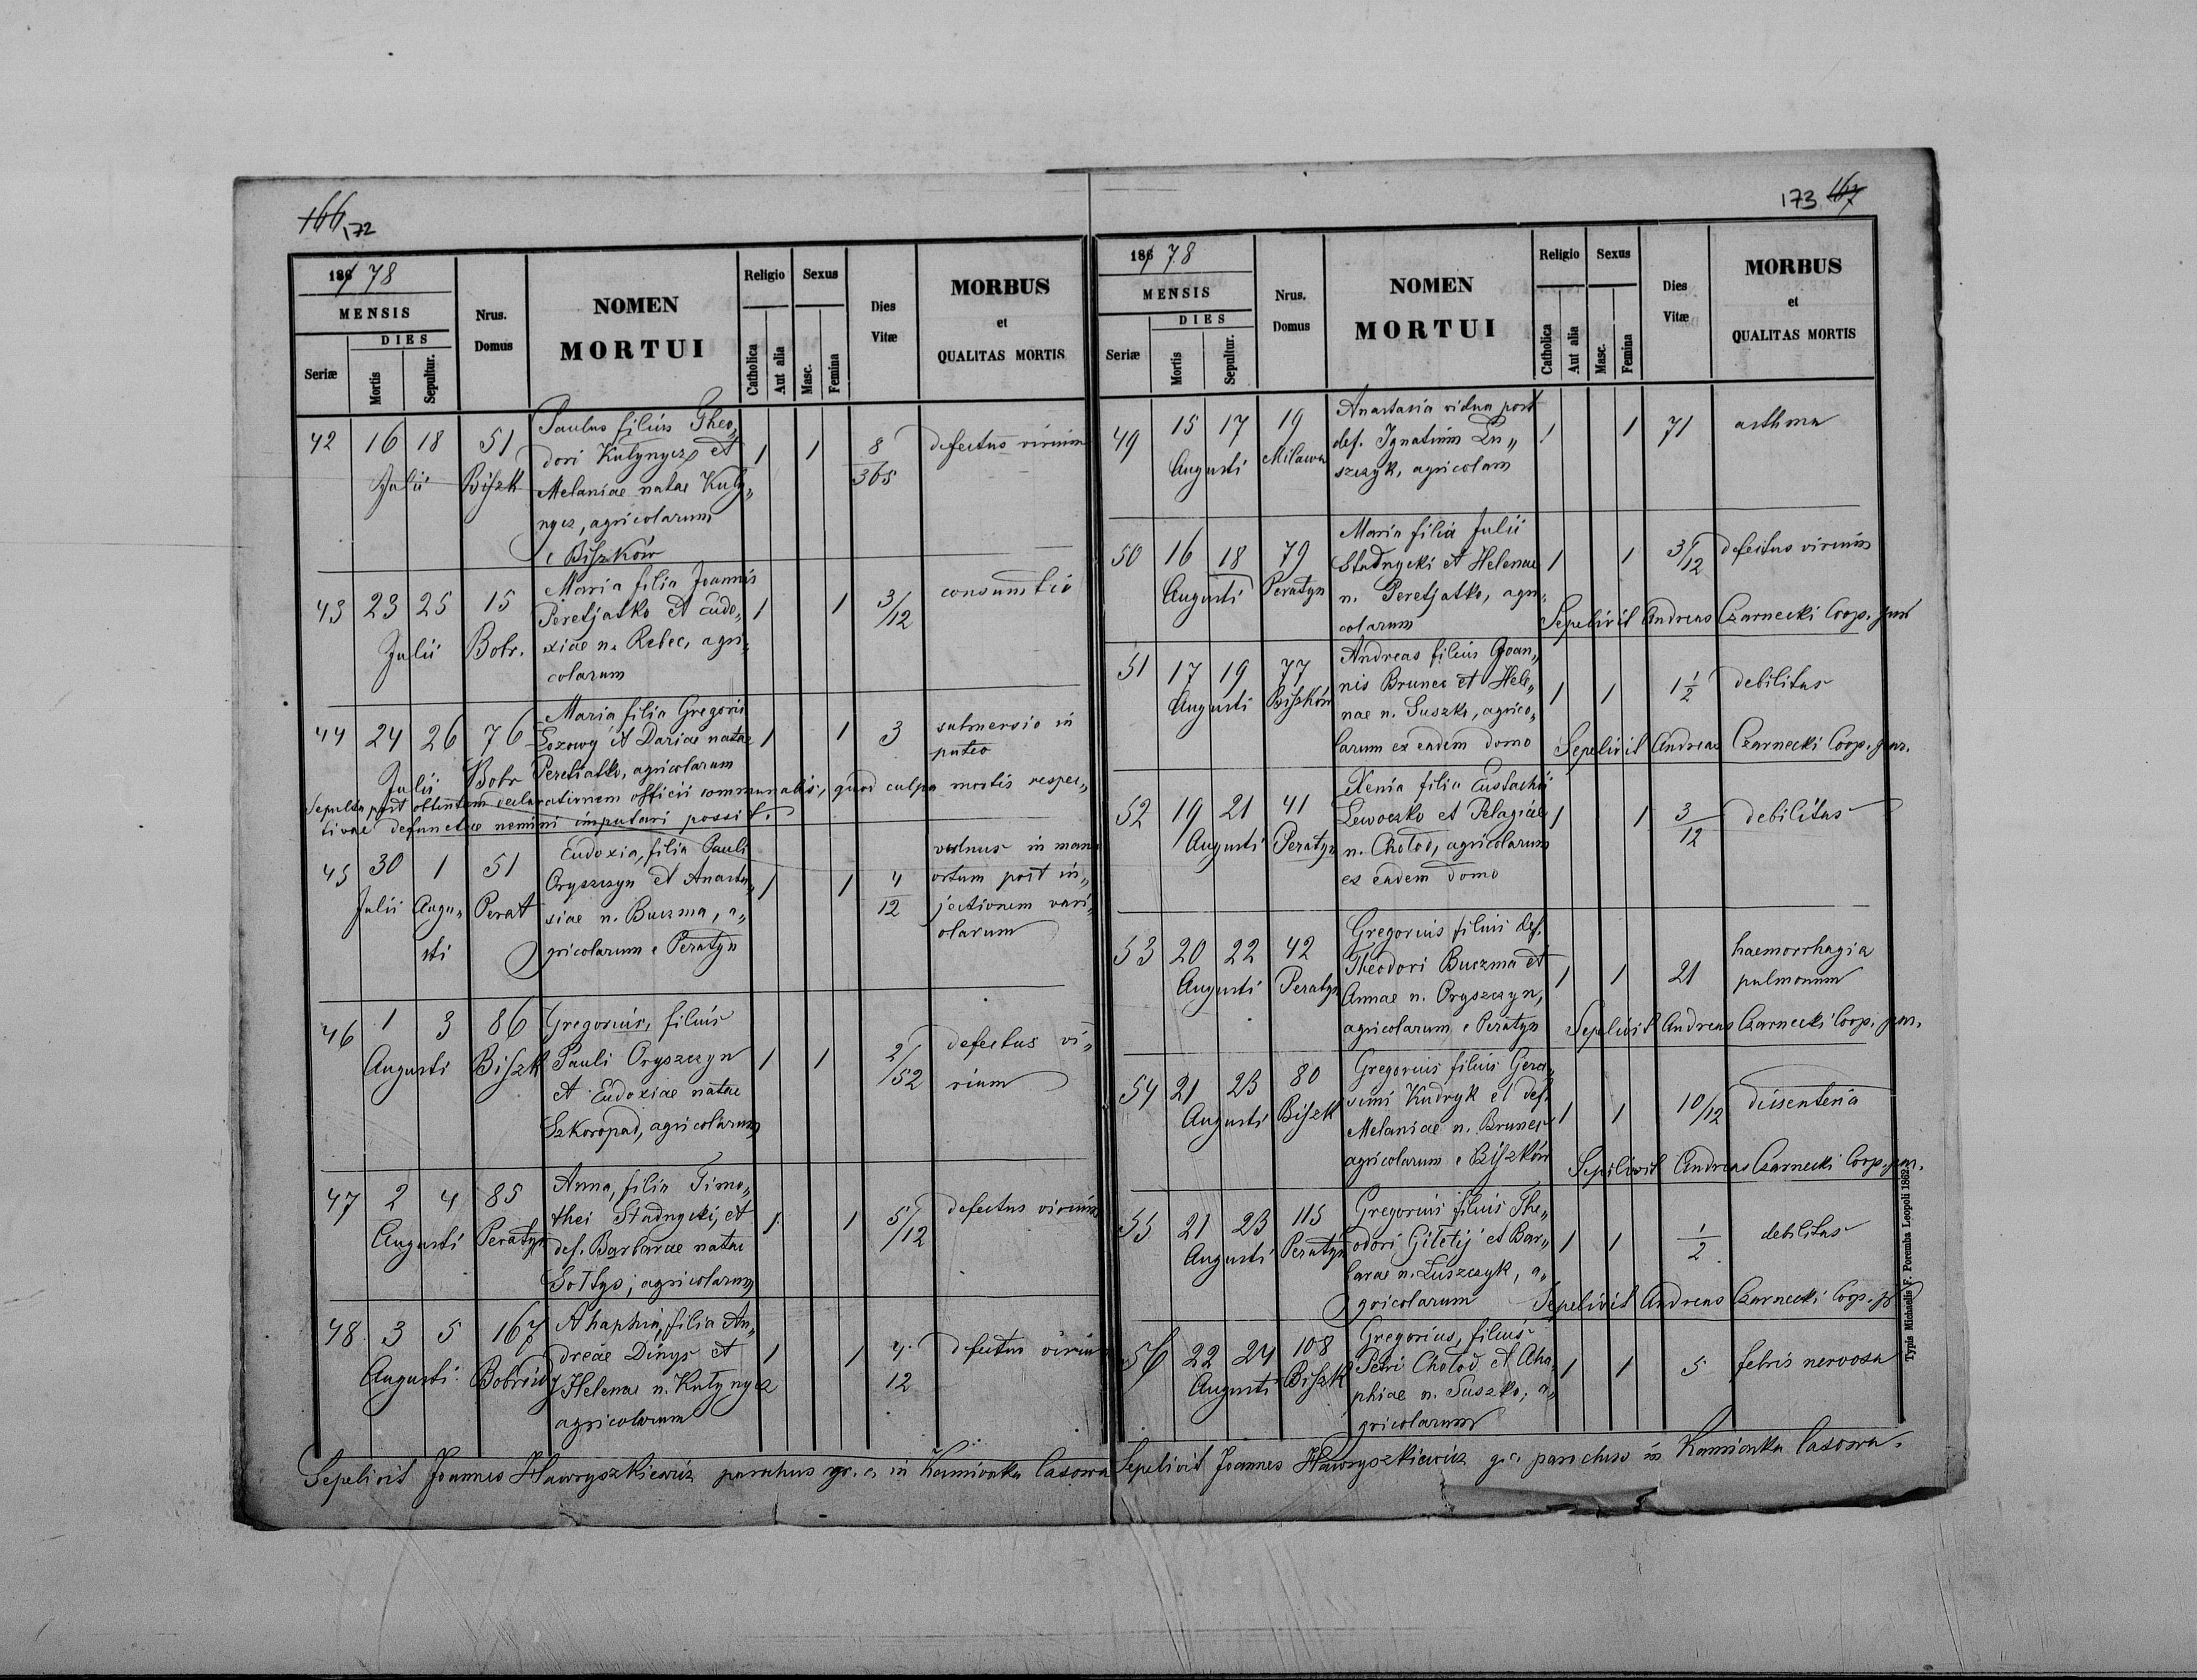 166 172
186 78
MENSIS
DIES
Seriæ Mortis Sepultur.
Nrus. Domus
NOMEN
MORTUI
Religio Sexus
Catholica Aut alia Masc. Femina
Dies
Vitæ
MORBUS
et
QUALITAS MORTIS
42 16 18 51 Paulus filius Theo„
dori Kutynycz et 1 1 8/365 defectus virium
Julii Biszk Melaniae natae Kuty„
nycz, agricolarum
e Biszków
43 23 25 15 Maria filia Joannis
Peretjatko et Eudo„ 1 1 3/12 consumtio
Julii Bobr. xiae n. Rebec, agri„
colarum
44 24 26 76 Maria filia Gregorii
Łozowy et Dariae natae 1 1 3 submersio in
puteo
Julii Bobr Peretiatko, agricolarum
Sepulta post obtentam declarationem officii communalis, quod culpa mortis respec„
tivae defunctae nemini imputari possit.
45 30 1 51 Eudoxia, filia Pauli
Oryszczyn et Anasta„ 1 1 4/12 vulnus in manu
ortum post in„
Julii Augu„ Perat siae n. Buczma, a„ jectionem vari„
sti gricolarum e Peratyn olarum
46 1 3 86 Gregorius, filius
Augusti Biszk Pauli Oryszczyn 1 1 2/52 defectus vi„
et Eudoxiae natae rium
Szkoropad, agricolarum
47 2 4 85 Anna, filia Timo„
thei Stadnycki, et 1 1 5/12 defectus virium
Augusti Peratyn def. Barbarae natae
Sołtys, agricolarum
48. 3 5 167 Ahaphia, filia An„
dreae Dinys et 1 1 4/12 defectus virium
Augusti Bobroidy Helenae n. Kutynycz
agricolarum
Sepelivit Joannes Hawryszkiewicz parochus gr. c. in Kamionka lasowa
173 167
186 78
MENSIS
DIES
Seriæ Mortis Sepultur.
Nrus.
Domus
NOMEN
MORTUI
Religio Sexus
Catholica Aut alia Masc. Femina
Dies
Vitæ
MORBUS
et
QUALITAS MORTIS
49 15 17 19 Anastasia vidua post
def. Ignatium Łu„ 1 1 71 asthma
Augusti Milawa szczyk, agricolam
50 16 18 79 Maria filia Julii
Stadnycki et Helenae 1 1 3/12 defectus virium
Augusti Peratyn n. Peretjatko, agri„
colarum Sepelivit Andreas Czarnecki Coop. par
51 17 19 77 Andreas filius Joan„
nis Brunec et Hele„ 1 1 1 1/2 debilitas
Augusti Biszków nae n. Suszko, agrico„
larum ex eadem domo Sepelivit Andreas Czarnecki Coop. par.
52 19 21 41 Xenia filia Eustachii
Lewoczko et Pelagiae 1 1 3/12 debilitas
Augusti Peratyn n. Chołod, agricolarum
ex eadem domo
53 20 22 42 Gregorius filius def.
Theodori Buczma et 1 1 21 haemorrhagia
pulmonum
Augusti Peratyn Annae n. Oryszczyn,
agricolarum e Peratyn Sepelivit Andreas Czarnecki Coop. par.
54 21 23 80 Gregorius filius Gera„
simi Kudryk et def. 1 1 10/12 dissenteria
Augusti Biszk Melaniae n. Brunec
agricolarum e Biszków Sepelivit Andreas Czarnecki Coop. par.
55 21 23 115 Gregorius filius The„
odori Giletij et Bar„ 1 1 1/2 debilitas
Augusti Peratyn barae n. Łuszczyk, a„
gricolarum Sepelivit Andreas Czarnecki Coop. p
56 22 24 108 Gregorius, filius
Petri Chołod et Aha„ 1 1 5 febris nervosa
Augusti Biszk phiae n. Suszko, a„
gricolarum
Sepelivit Joannes Hawryszkiewicz g. c. parochus in Kamionka lasowa.
Typis Michaelis F. Poremba Leopoli 1862.